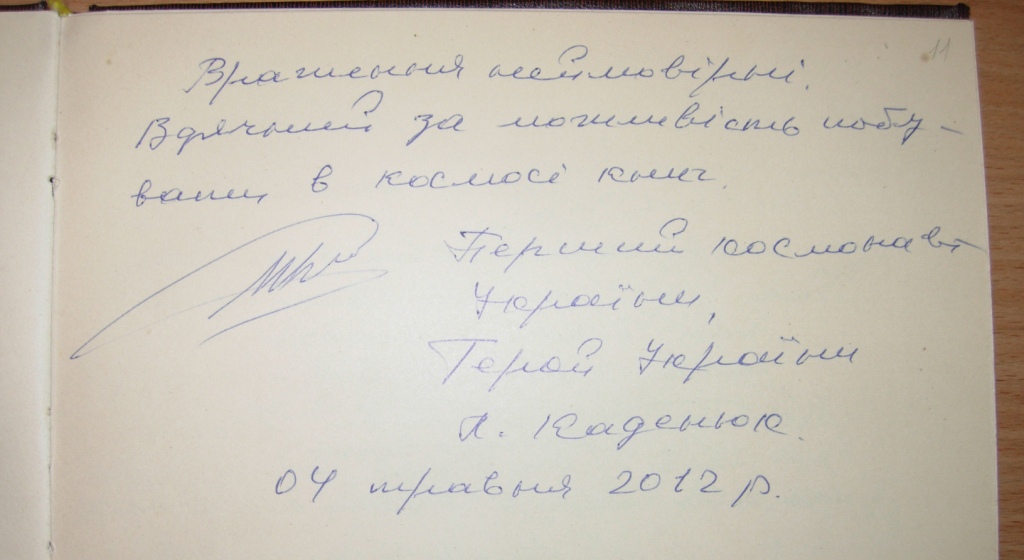 11
Враження неймовірні.
Вдячний за можливість побу-
вати в космосі книг.
Перший космонавт
України,
Герой України
Л. Каденюк.
04 травня 2012 р.